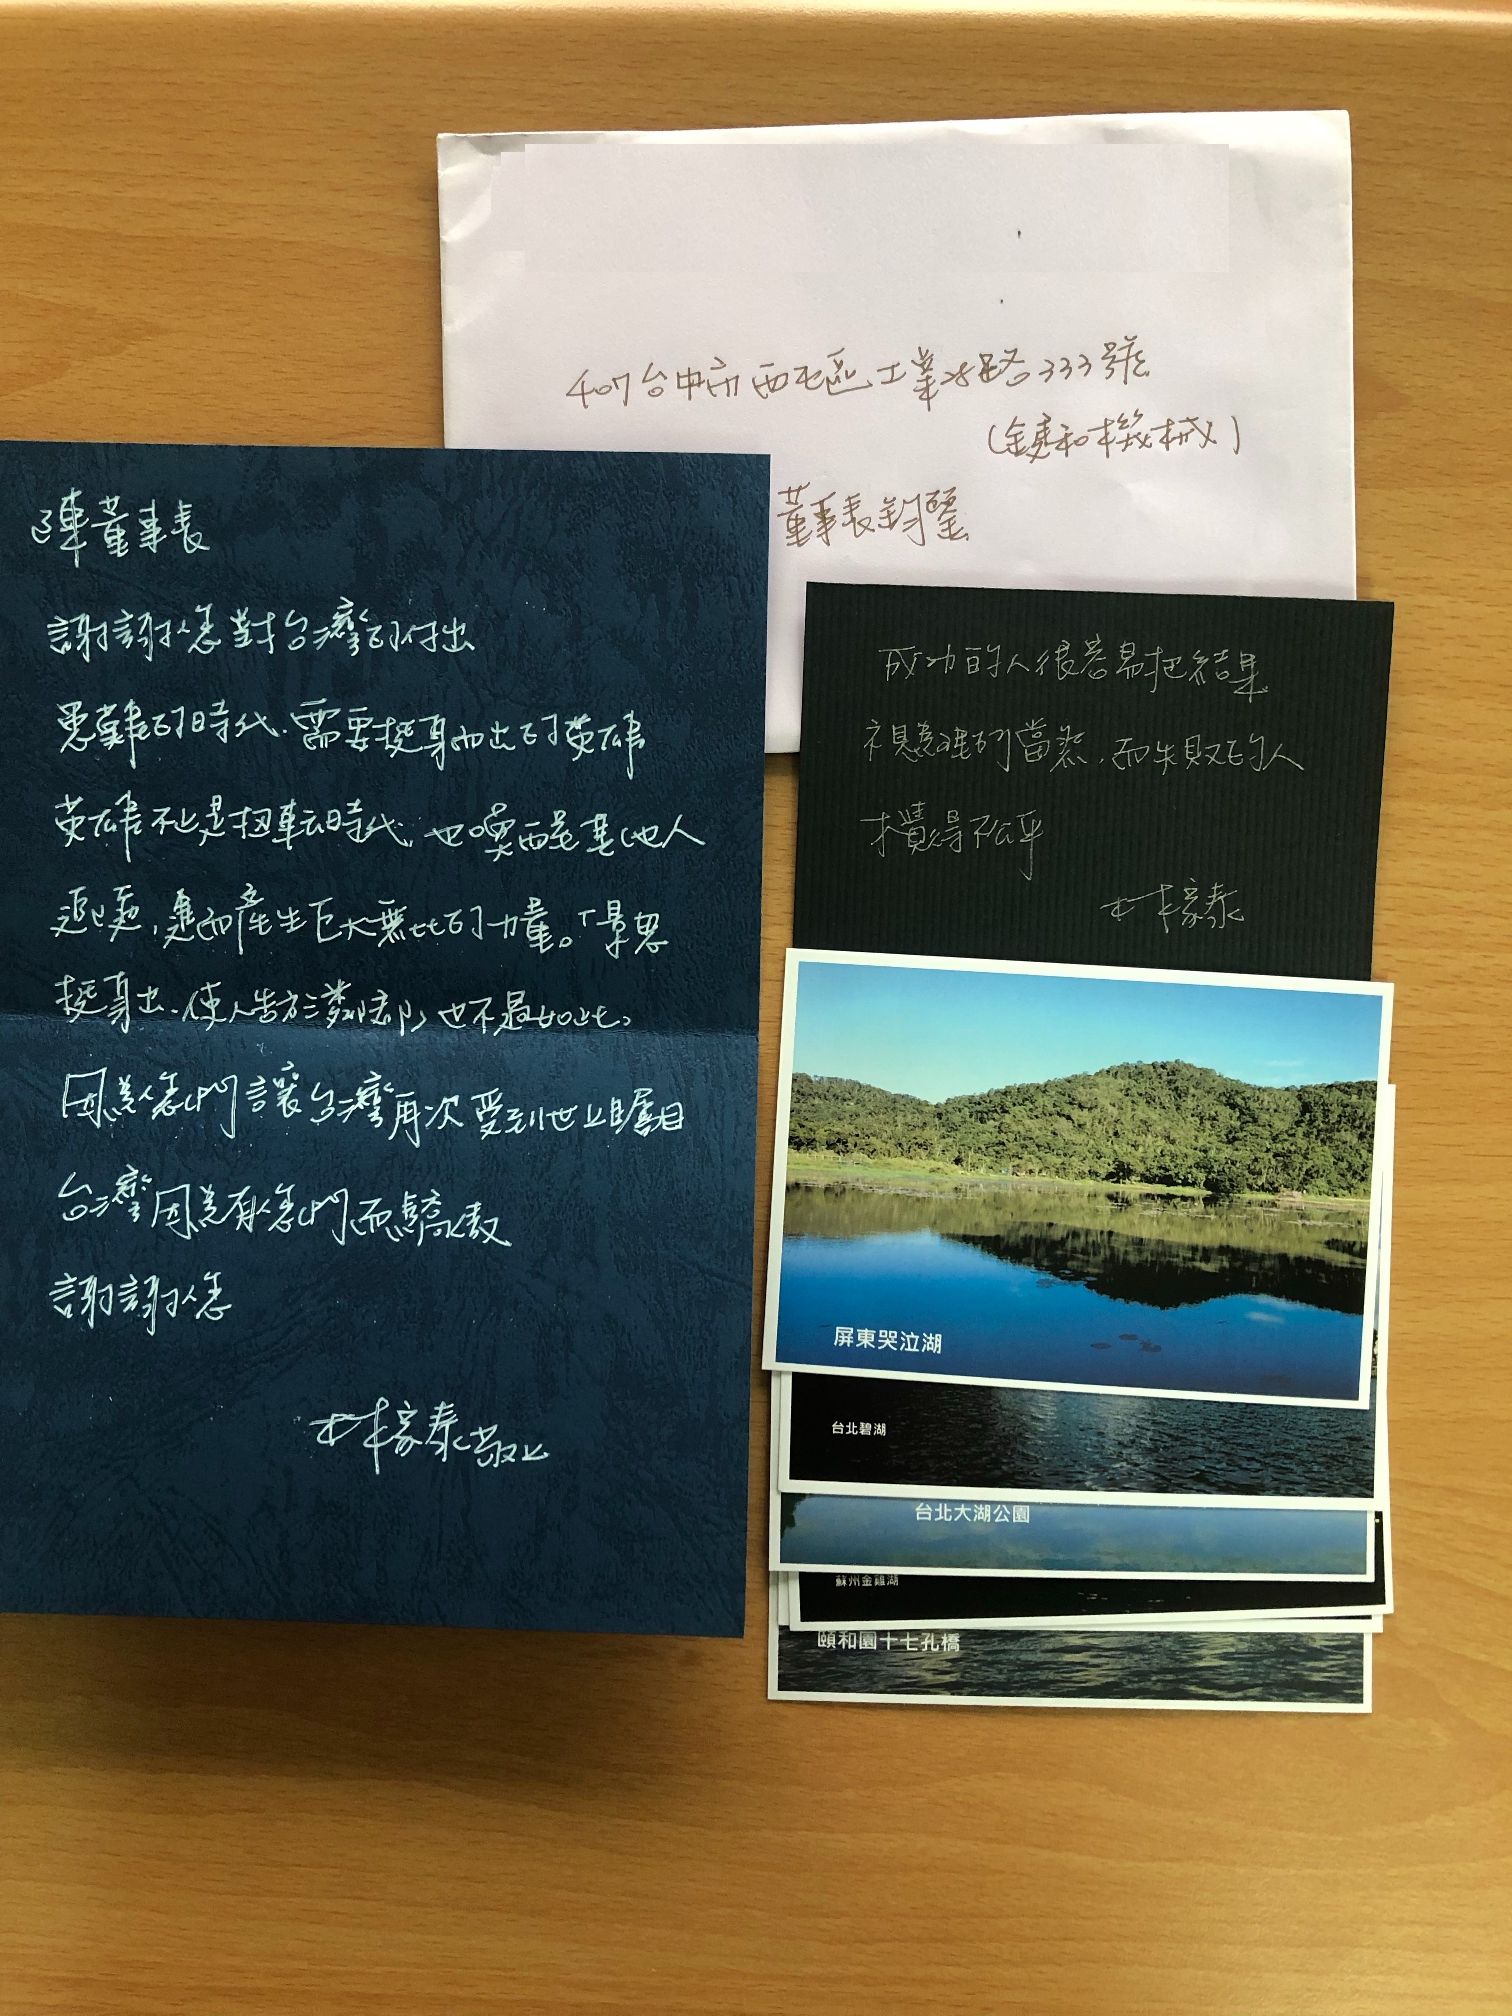 407台中市西屯區工業28路333號
(鐿和機械)
董事長鈞鑒
陳董事長
謝謝您對台灣的付出
患難的時代.需要挺身而出的英雄
英雄不止是扭轉時代,也喚醒其他人
追隨,進而產生巨大無比的力量。「景思
挺身出.使人
也不過如此。
因為您們讓台灣再次受到世上矚目
台灣因為有您們而驕傲
謝謝您
林家泰敬上
成功的人很容易把結果
視為理的當然,而失敗的人
才覺得不公平
林家泰
屏東哭泣湖
台北碧湖
台北大湖公園
蘇州金雞湖
頤和園十七孔橋